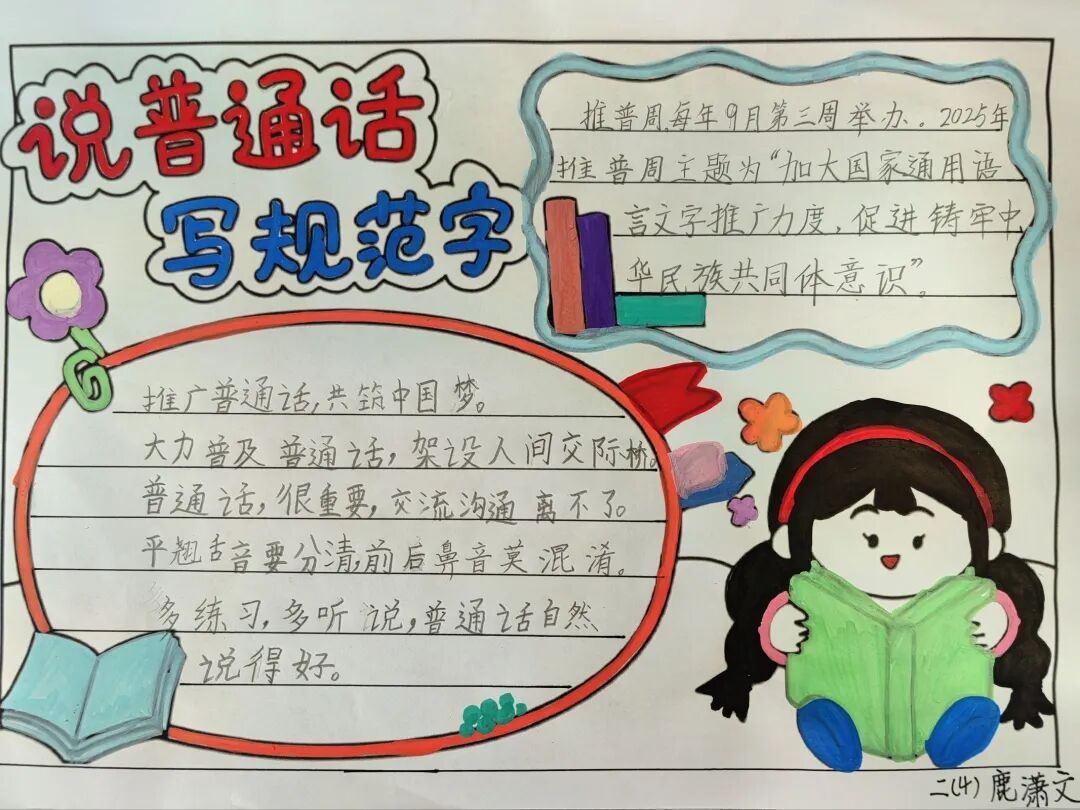 说普通话
写规范字
推普周每年9月第三周举办。2025年
推普周主题为“加大国家通用语
言文字推广力度,促进铸牢中
华民族共同体意识”。
推广普通话,共筑中国梦。
大力普及普通话,架设人间交际桥。
普通话,很重要,交流沟通离不了。
平翘舌音要分清,前后鼻音莫混淆。
多练习,多听说,普通话自然
说得好。
二(4) 鹿潇文